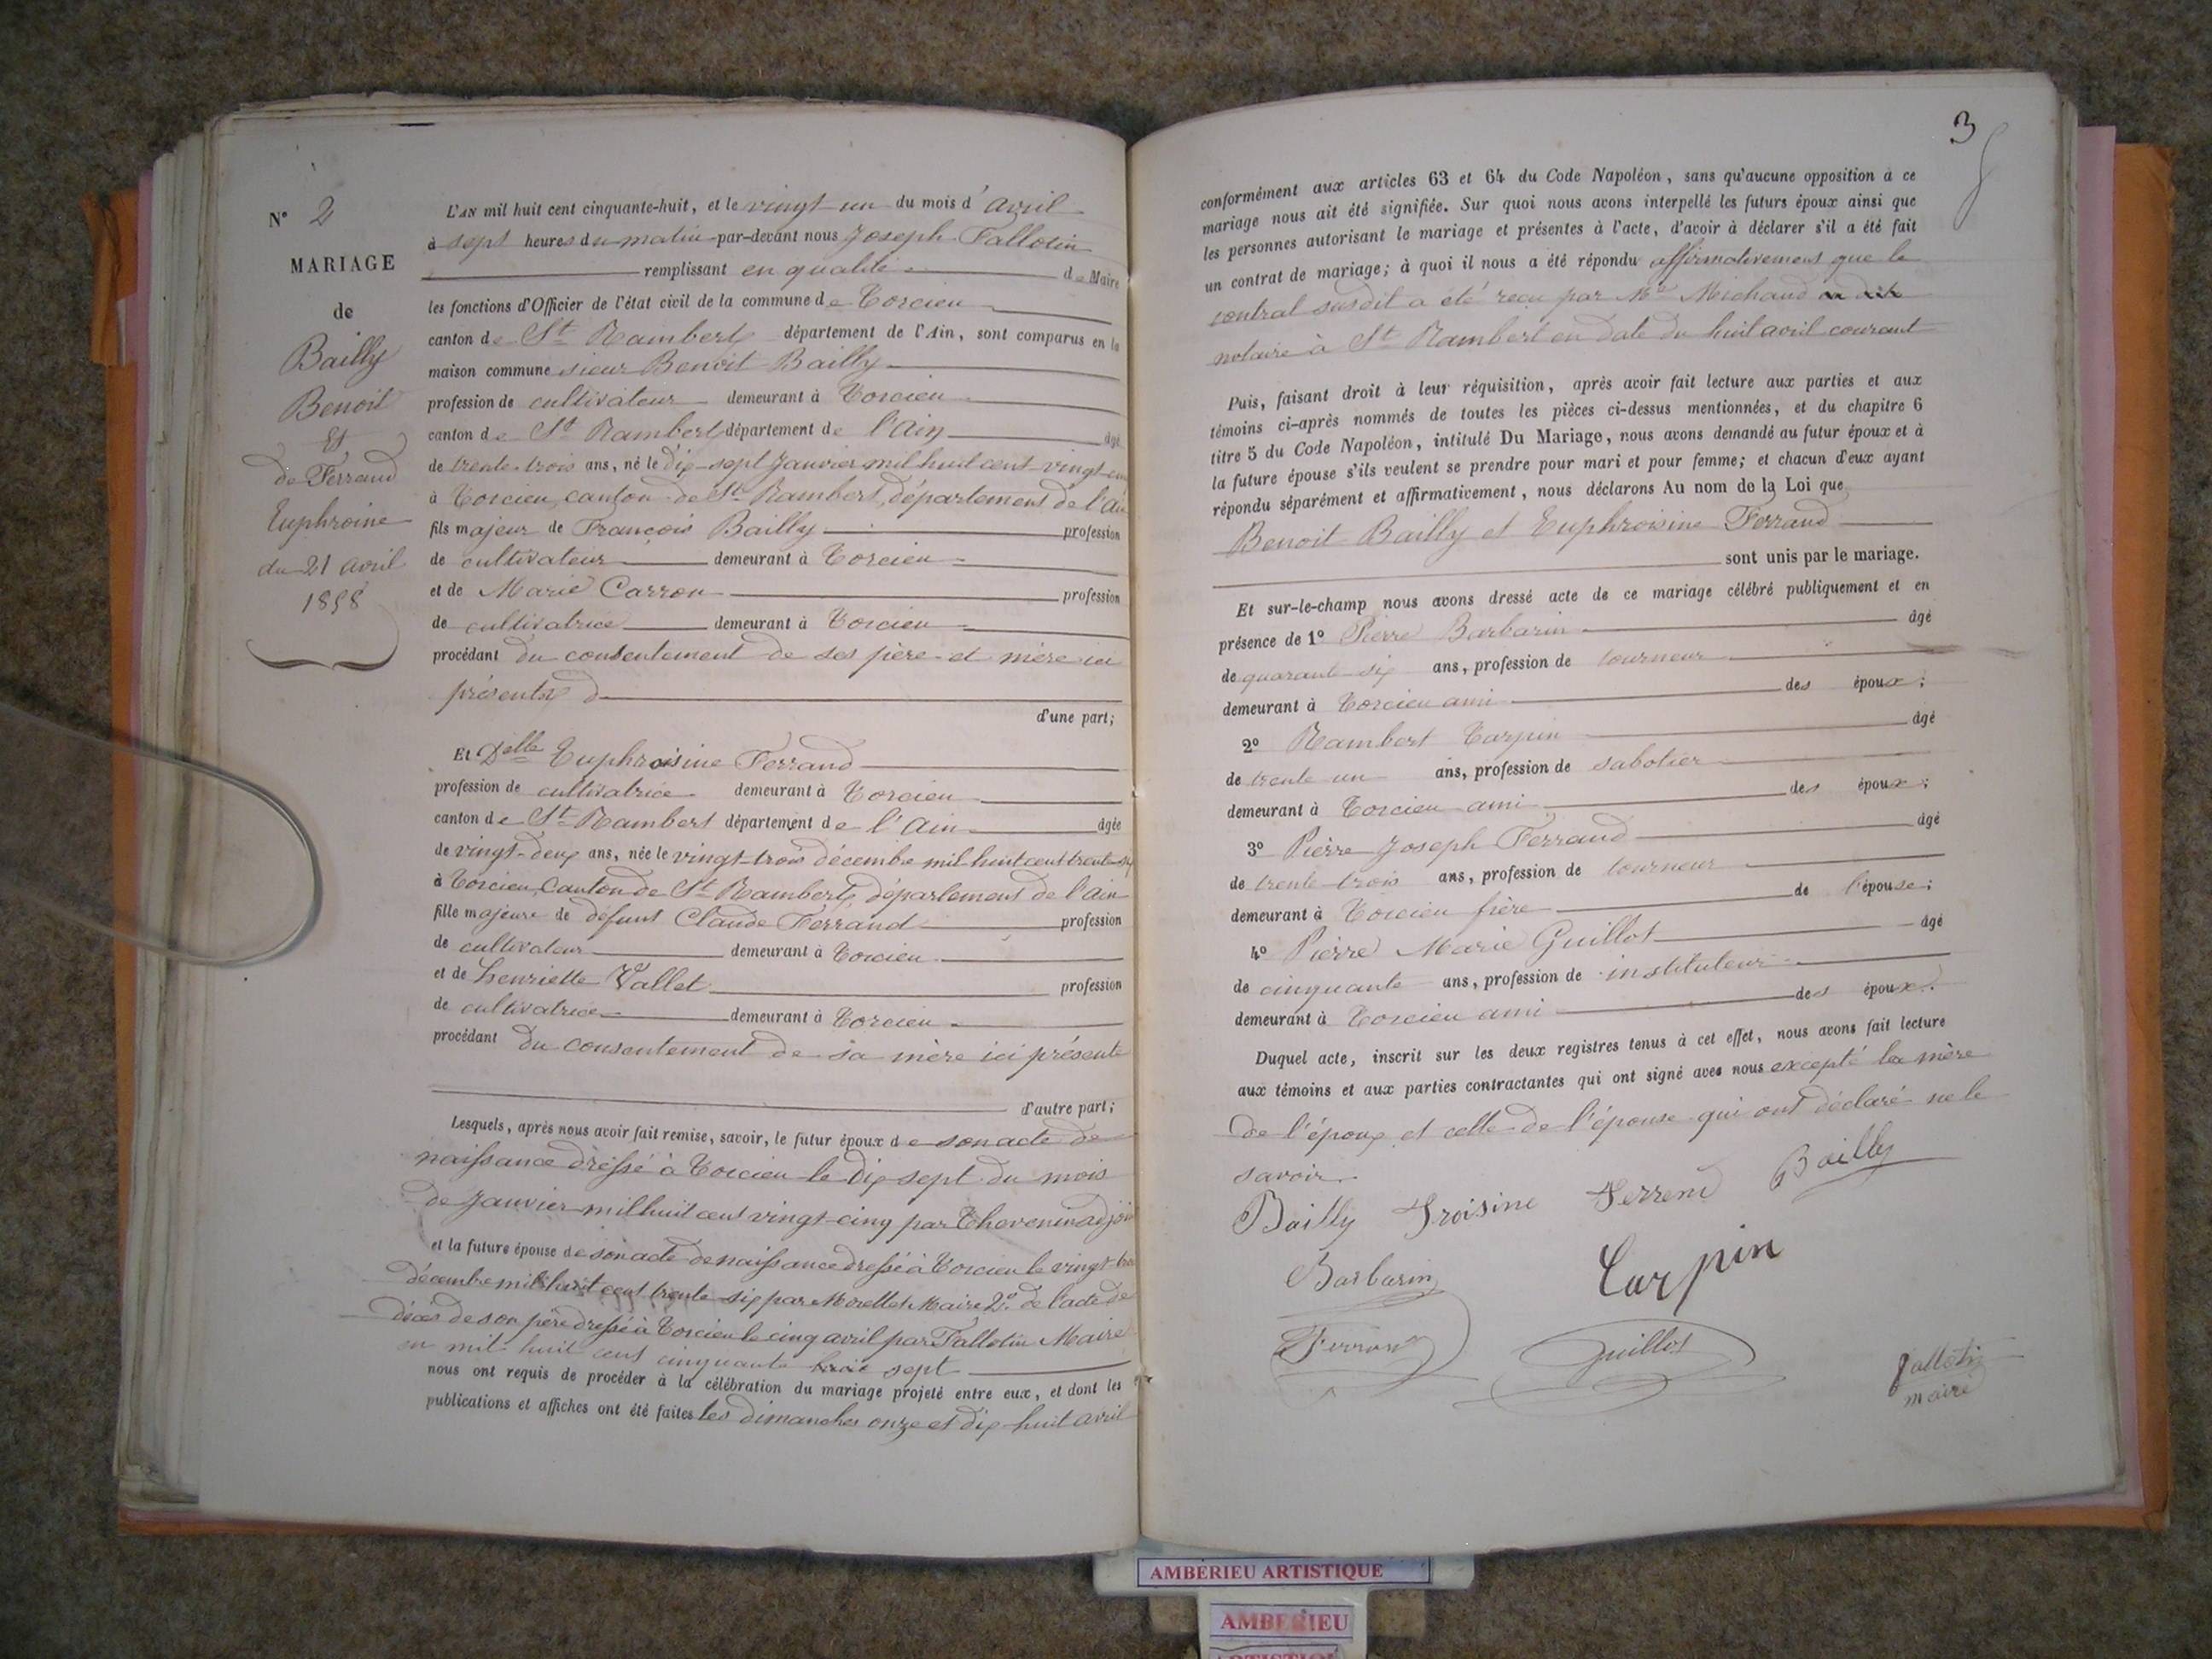 N° 2
MARIAGE
de
Bailly
Benoit
Et
de Ferrand
Euphroine
du 21 avril
1858
L'AN mil huit cent cinquante-huit, et le vingt un du mois d'avril
à sept heures du matin par-devant nous Joseph Fallotin
remplissant en qualité de Maire
les fonctions d'Officier de l'état civil de la commune de Torcieu
canton de St Rambert département de l'Ain, sont comparus en la
maison commune sieur Benoit Bailly
profession de cultivateur demeurant à Torcieu
canton de St Rambert département de l'Ain âgé
de trente-trois ans, né le dix-sept Janvier mil huit cent vingt-cinq
à Torcieu, canton de St Rambert, département de l'Ain
fils majeur de François Bailly profession
de cultivateur demeurant à Torcieu
et de Marie Carron profession
de cultivatrice demeurant à Torcieu
procédant du consentement de ses père et mère ici
présents d
d'une part;
Et Delle Euphroisine Ferrand
profession de cultivatrice demeurant à Torcieu
canton de St Rambert département de l'Ain âgée
de vingt-deux ans, née le vingt-trois décembre mil huit cent trente-six
à Torcieu, Canton de St Rambert, département de l'Ain
fille majeure de défunt Claude Ferrand profession
de cultivateur demeurant à Torcieu
et de henriette Vallet profession
de cultivatrice demeurant à Torcieu
procédant du consentement de sa mère ici présente
d'autre part;
Lesquels, après nous avoir fait remise, savoir, le futur époux de son acte de
naissance dressé à Torcieu le dix sept du mois
de Janvier mil huit cent vingt-cinq par Thevenin adjoin
et la future épouse de son acte de naissance dressé à Torcieu le vingt-trois
décembre mil huit cent trente-six par Morellet Maire 2° de l'acte de
décès de son père dressé à Torcieu le cinq avril par Fallotin Maire
en mil huit cent cinquante sept
nous ont requis de procéder à la célébration du mariage projeté entre eux, et dont les
publications et affiches ont été faites les dimanches onze et dix-huit avril
3
conformément aux articles 63 et 64 du Code Napoléon, sans qu'aucune opposition à ce
mariage nous ait été signifiée. Sur quoi nous avons interpellé les futurs époux ainsi que
les personnes autorisant le mariage et présentes à l'acte, d'avoir à déclarer s'il a été fait
un contrat de mariage; à quoi il nous a été répondu affirmativement que le
contrat susdit a été reçu par Me Michaud
notaire à St Rambert en date du huit avril courant
Puis, faisant droit à leur réquisition, après avoir fait lecture aux parties et aux
témoins ci-après nommés de toutes les pièces ci-dessus mentionnées, et du chapitre 6
titre 5 du Code Napoléon, intitulé Du Mariage, nous avons demandé au futur époux et à
la future épouse s'ils veulent se prendre pour mari et pour femme; et chacun d'eux ayant
répondu séparément et affirmativement, nous déclarons Au nom de la Loi que
Benoit Bailly et Euphroisine Ferrand
sont unis par le mariage.
Et sur-le-champ nous avons dressé acte de ce mariage célébré publiquement et en
présence de 1° Pierre Barbarin âgé
de quarante six ans, profession de tourneur
demeurant à Torcieu ami des époux;
2° Rambert Carpin âgé
de trente un ans, profession de sabotier
demeurant à Torcieu ami des époux;
3° Pierre Joseph Ferrand âgé
de trente-trois ans, profession de tourneur
demeurant à Torcieu frère de l'épouse;
4° Pierre Marie Guillot âgé
de cinquante ans, profession de instituteur
demeurant à Torcieu ami des époux.
Duquel acte, inscrit sur les deux registres tenus à cet effet, nous avons fait lecture
aux témoins et aux parties contractantes qui ont signé avec nous excepté la mère
de l'époux et celle de l'épouse qui ont déclaré ne le
savoir.
Bailly Froisine Ferrend Bailly
Barbarin Carpin
Ferrand Guillot
fallotin
maire
AMBÉRIEU ARTISTIQUE
AMBERIEU
ARTISTIQUE